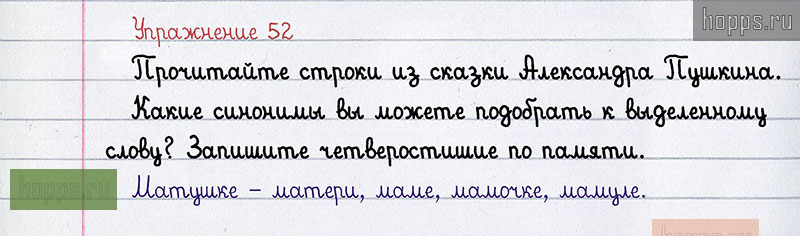 Упражнение 52
hopps.ru
Прочитайте строки из сказки Александра Пушкина.
Какие синонимы вы можете подобрать к выделенному
слову? Запишите четверостишие по памяти.
hopps.ru
Матушке – матери, маме, мамочке, мамуле.
hopps.ru